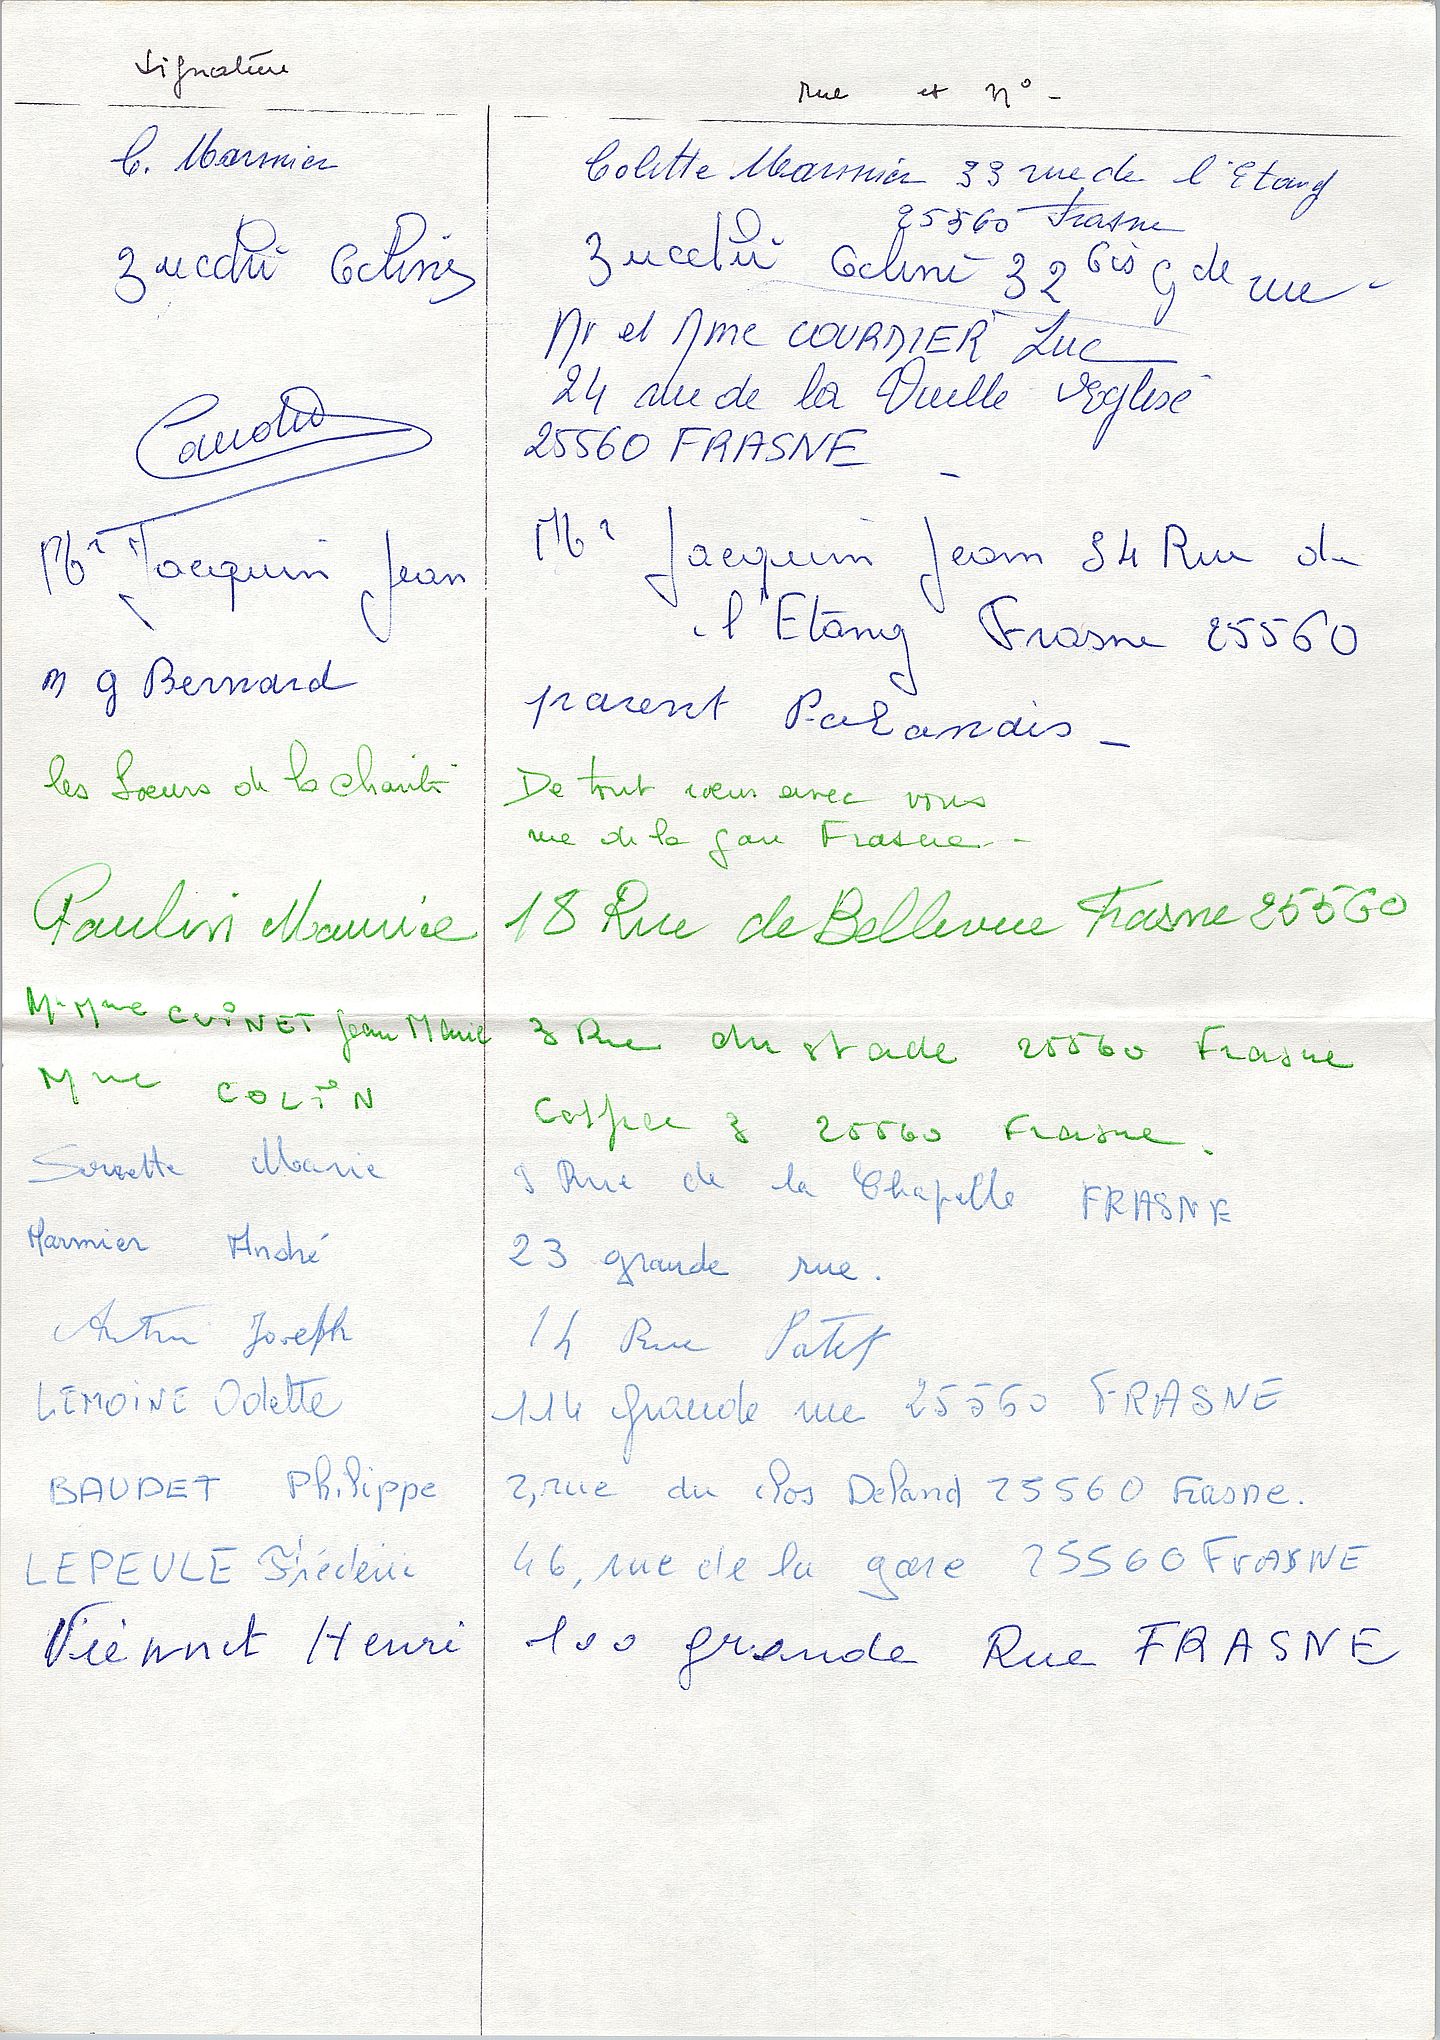 Signature
rue et N° -
C. Marmier
Colette Marmier 33 rue de l'Etang
25560 Frasne
32 bis gde rue -
Mr et Mme COURDIER Luc
24 rue de la Vieille Eglise
25560 FRASNE -
Mr Jacquin Jean
Mr Jacquin Jean 34 Rue de
l'Etang Frasne 25560
M g Bernard
parent -
les Soeurs de la Charité
De tout coeur avec vous
rue de la gare Frasne. -
Paulin Maurice
18 Rue de Bellevue Frasne 25560
Mr Mme CUINET Jean Marie
3 Rue du stade 25560 Frasne
Mme COLIN
3 25560 Frasne.
Marie
Rue de la Chapelle FRASNE
Marmier André
23 grande rue.
Joseph
14 Rue Patel
LEMOINE Odette
114 grande rue 25560 FRASNE
BAUDET Philippe
2, rue du clos Deland 25560 Frasne.
LEPEULE Frédéric
46, rue de la gare 25560 FRASNE
Viennet Henri
100 grande Rue FRASNE